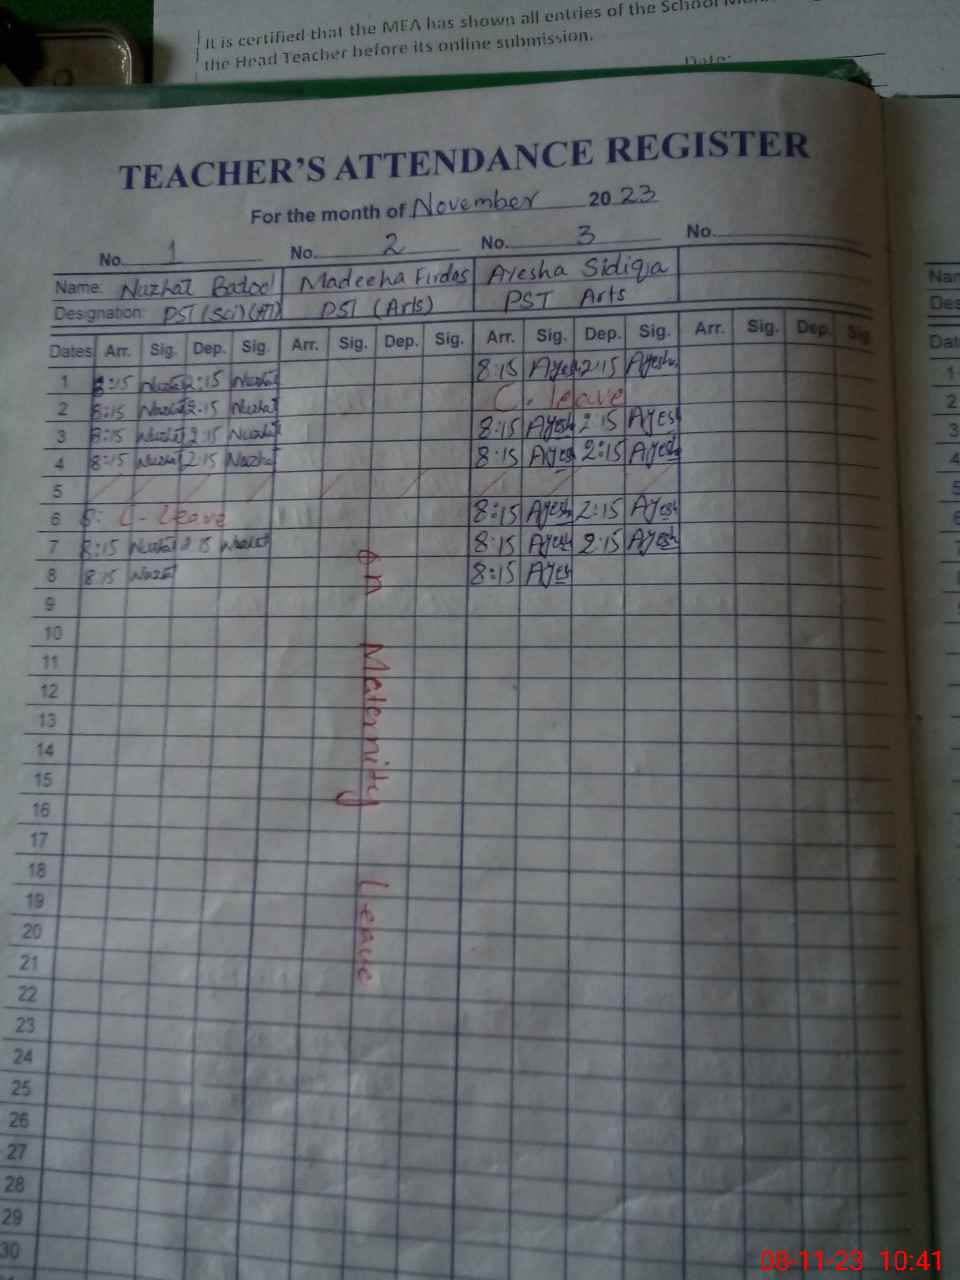 It is certified that the MEA has shown all entries of the School
the Head Teacher before its online submission.
Date:
TEACHER'S ATTENDANCE REGISTER
For the month of November 2023
No. 1 No. 2 No. 3 No.
Name: Nuzhat Batool Madeeha Firdos Ayesha Sidiqia
Designation: PST (Sci) (HT) PST (Arts) PST Arts
Dates Arr. Sig. Dep. Sig. Arr. Sig. Dep. Sig. Arr. Sig. Dep. Sig. Arr. Sig. Dep. Sig.
1 8:15 Nuzhat 2:15 Nuzhat 8:15 Ayesh 2:15 Ayesha
2 8:15 Nuzhat 2:15 Nuzhat C. leave
3 8:15 Nuzhat 2:15 Nuzhat 8:15 Ayesh 2:15 Ayesh
4 8:15 Nuzhat 2:15 Nuzhat 8:15 Ayesh 2:15 Ayesh
5
6 8: C- Leave 8:15 Ayesh 2:15 Ayesh
7 8:15 Nuzhat 2:15 Nuzhat 8:15 Ayesh 2:15 Ayesh
8 8:15 Nuzhat 8:15 Ayesh
9
10
11
12
13
14
15
16
17
18
19
20
21
22
23
24
25
26
27
28
29
30
on Maternity Leave
Nam
Des
Dat
1
2
3
4
5
6
7
08-11-23 10:41